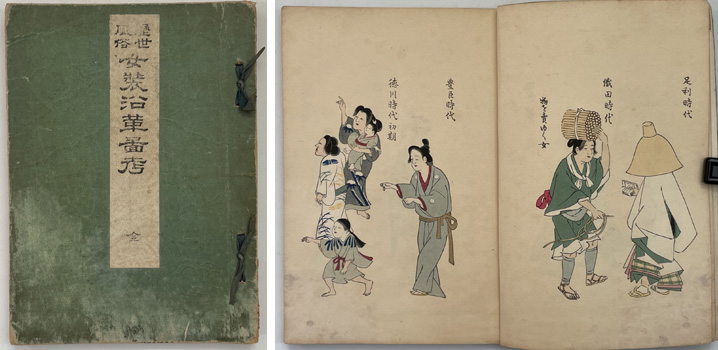 歷世
風俗
女裝沿革啚考
全
足利時代
織田時代
物を賣ゆく女
豊臣時代
徳川時代初期